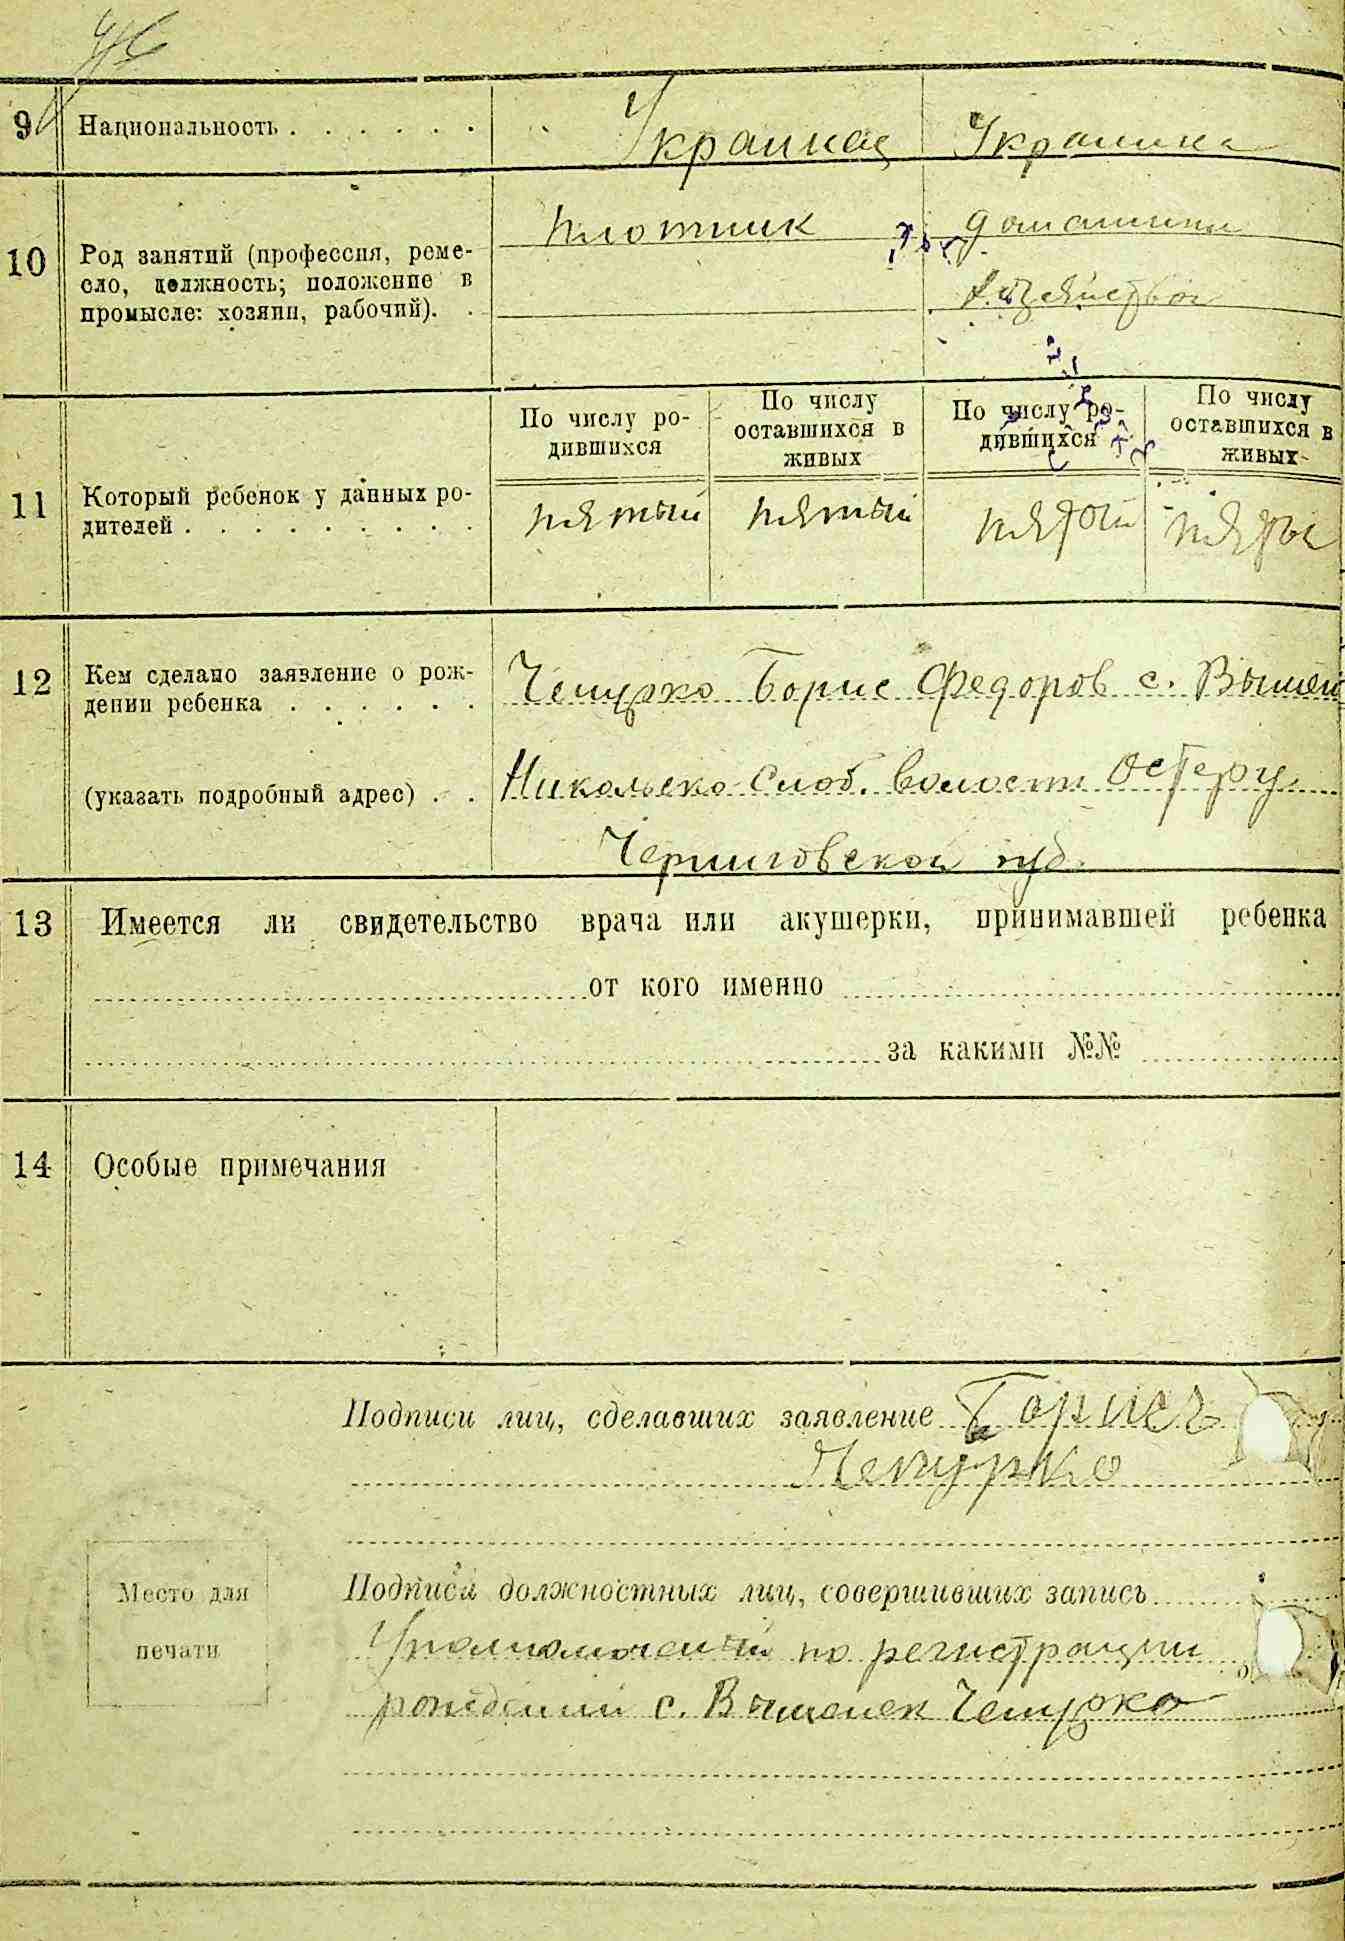 9 Национальность . . . . . . Украинец Украинка
10 Род занятий (профессия, реме-
сло, должность; положение в
промысле: хозяин, рабочий). .
плотник
домашним
хозяйством
По числу ро-
дившихся
По числу
оставшихся в
живых
По числу ро-
дившихся
По числу
оставшихся в
живых
11 Который ребенок у данных ро-
дителей . . . . . . . . .
пятый пятый пятой пяты
12 Кем сделано заявление о рож-
дении ребенка . . . . . .
(указать подробный адрес) . .
Чепурко Борис Федоров с. Вышен
Никольско Слоб. волости Остер у.
Черниговской губ.
13 Имеется ли свидетельство врача или акушерки, принимавшей ребенка
от кого именно
за какими №№
14 Особые примечания
Подписи лиц, сделавших заявление Борись
Чепурко
Подписи должностных лиц, совершивших запись
Уполномочений по регистрации
рождений с. Вишенек Чепурко
Место для
печати